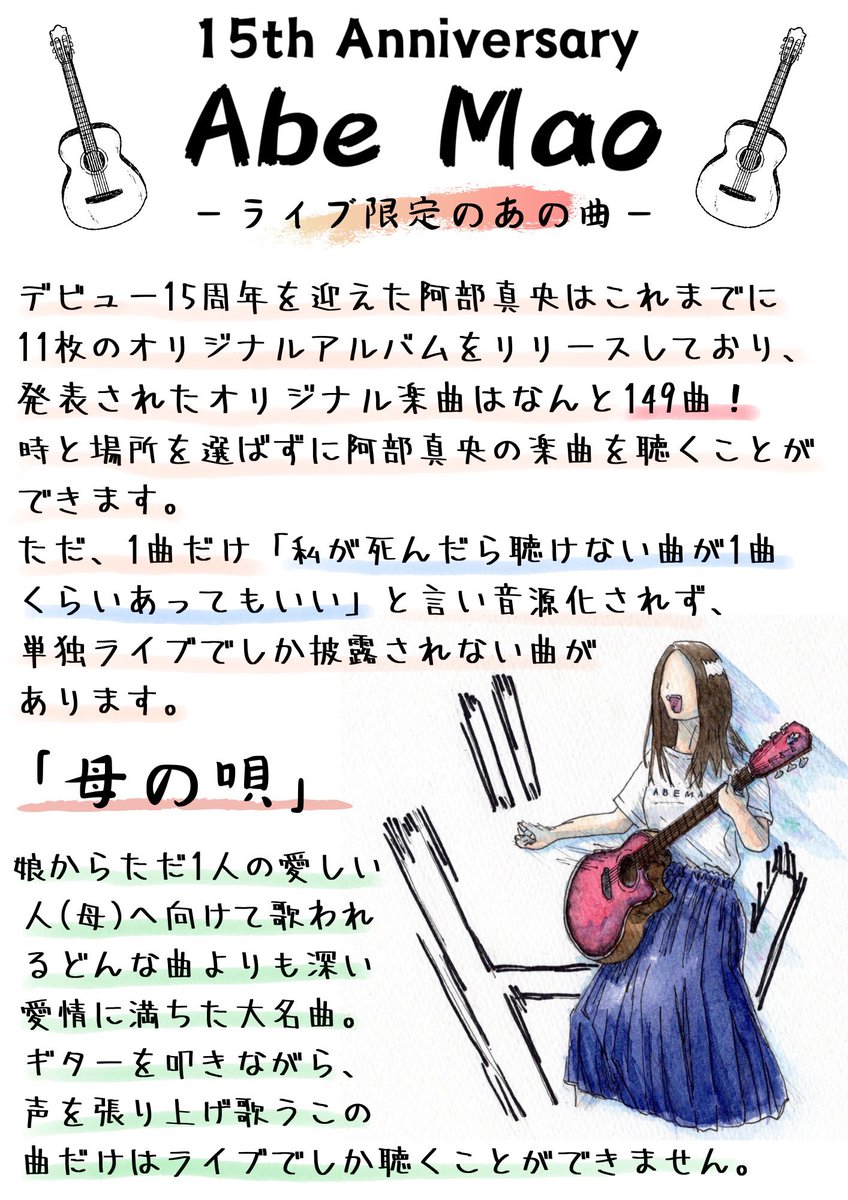 15th Anniversary
Abe Mao
－ライブ限定のあの曲－
デビュー15周年を迎えた阿部真央はこれまでに
11枚のオリジナルアルバムをリリースしており、
発表されたオリジナル楽曲はなんと149曲！
時と場所を選ばずに阿部真央の楽曲を聴くことが
できます。
ただ、1曲だけ「私が死んだら聴けない曲が1曲
くらいあってもいい」と言い音源化されず、
単独ライブでしか披露されない曲が
あります。
「母の唄」
娘からただ1人の愛しい
人(母)へ向けて歌われ
るどんな曲よりも深い
愛情に満ちた大名曲。
ギターを叩きながら、
声を張り上げ歌うこの
曲だけはライブでしか聴くことができません。
ABEMA